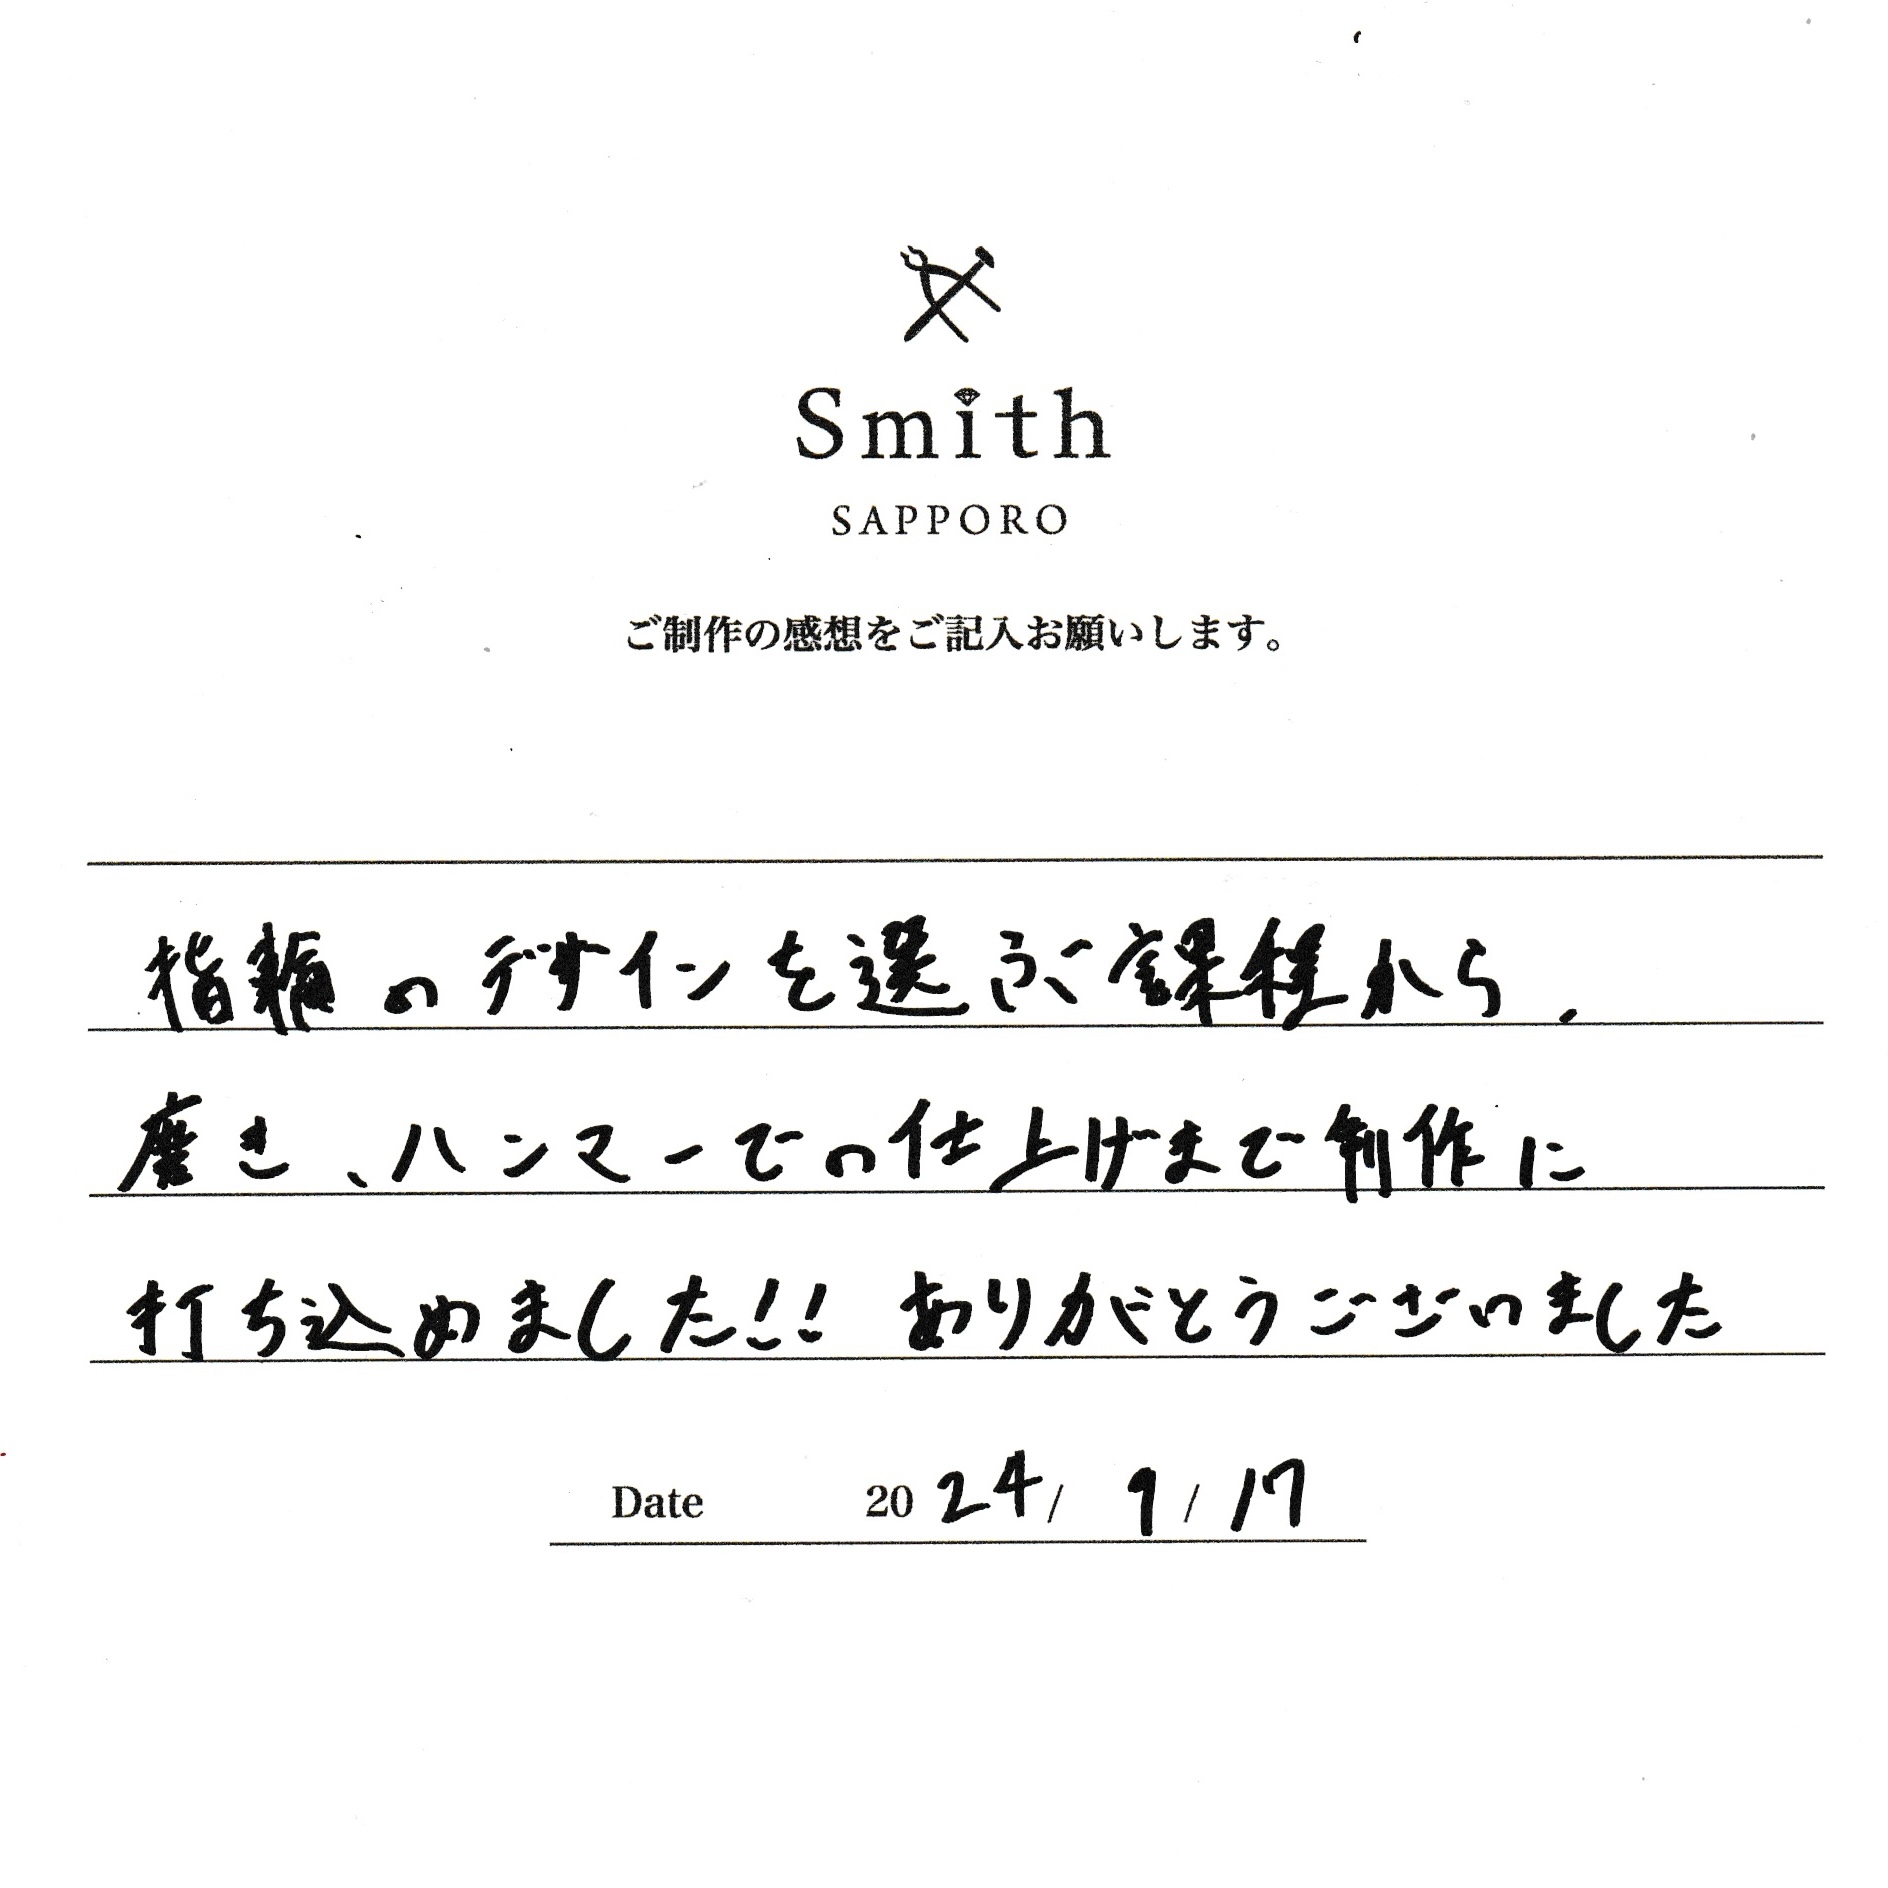 Smith
SAPPORO
ご制作の感想をご記入お願いします。
指輪のデザインを選ぶ課程から、
磨き、ハンマーでの仕上げまで制作に
打ち込めました!! ありがとうございました
Date 2024/ 9 / 17